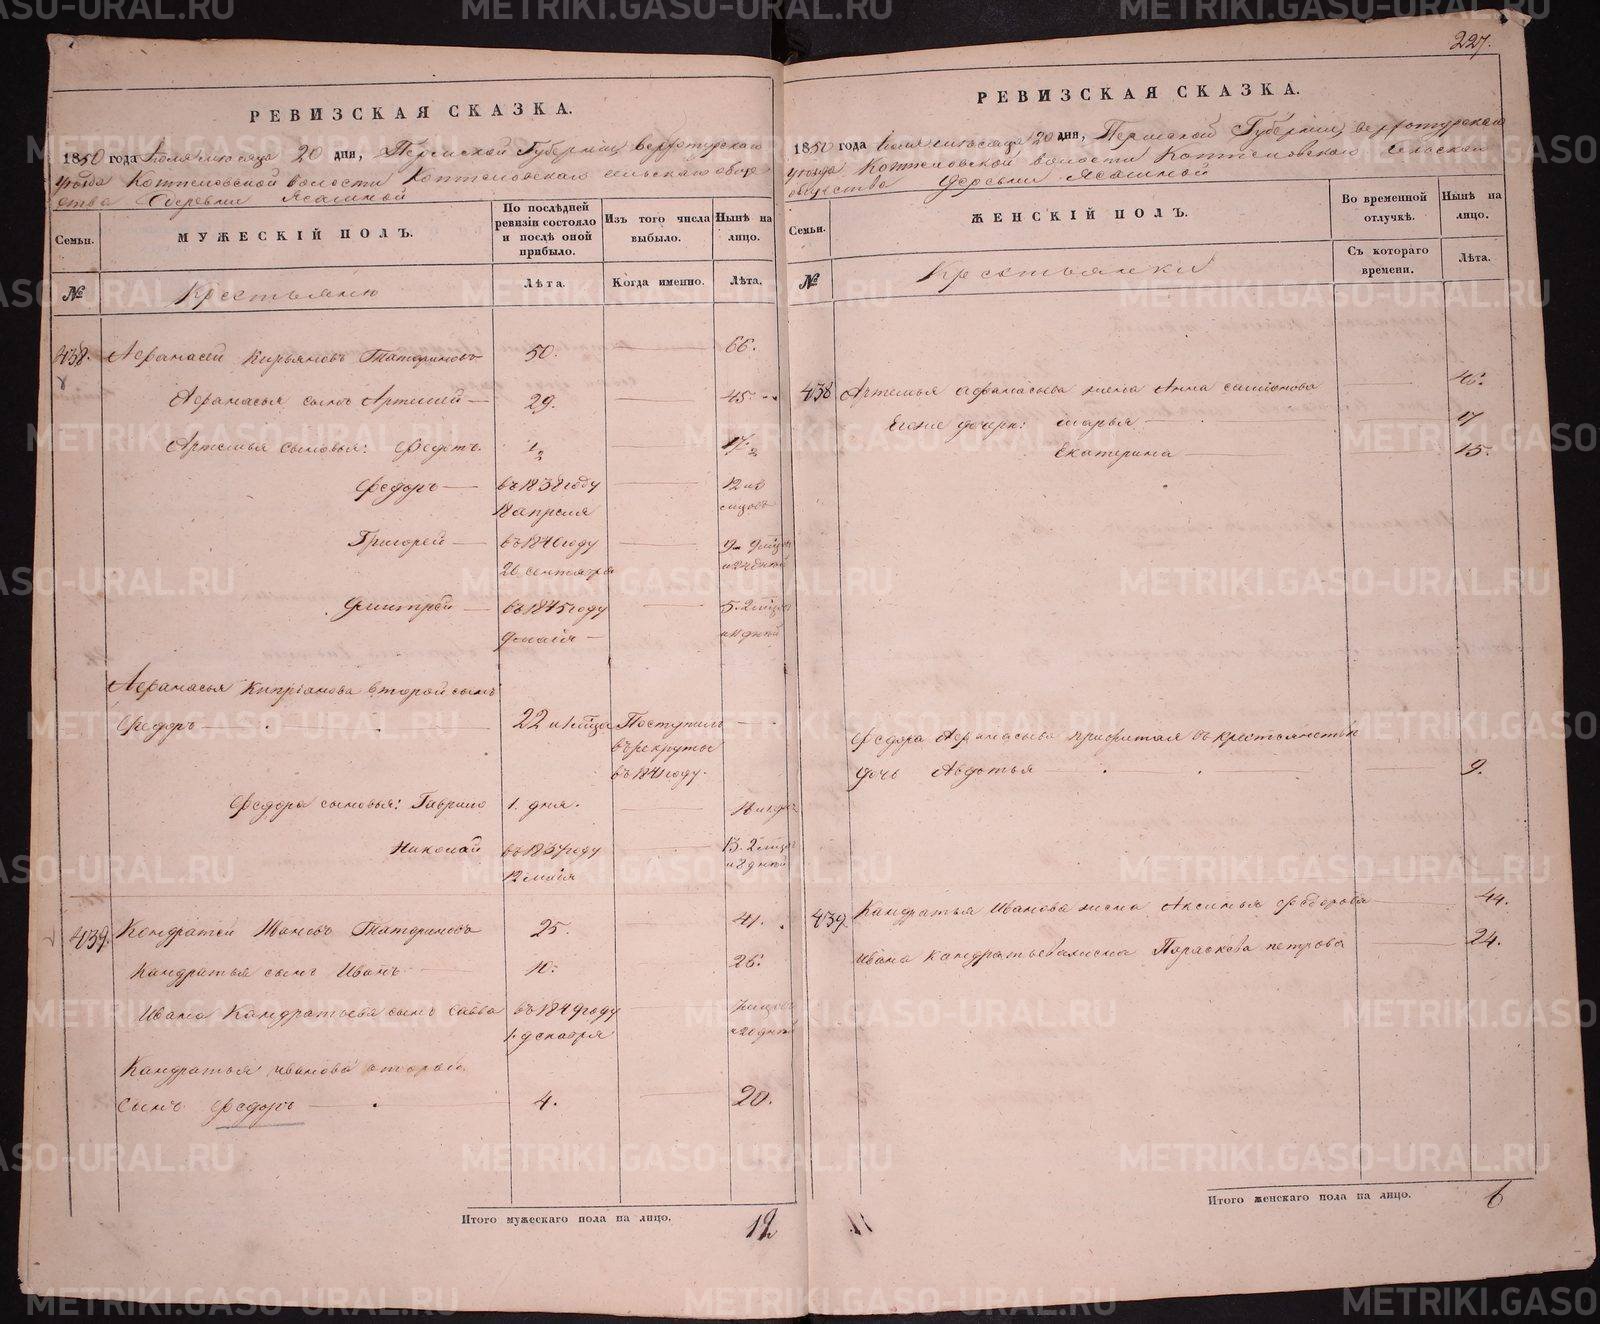 РЕВИЗСКАЯ СКАЗКА.
1850 года Июля месяца 20 дня, Пермской Губернии Верхотурскаго
уезда Коптеловской волости Коптеловскаго сельскаго обще
ства Деревни Ясашной
Семьи.
МУЖЕСКІЙ ПОЛЪ.
По послѣдней ревизіи состояло и послѣ оной прибыло.
Изъ того числа выбыло.
Нынѣ на лицо.
№
Крестьяне
Лѣта.
Когда именно.
Лѣта.
438. Афанасей Кирьяновъ Татариновъ 50. 66.
Афанасья сынъ Артемей 29. 45.
Артемья сыновья: Федотъ 1/2 17.
Федоръ въ 1838 году 12 и 3
18 апреля месяцовъ
Григорей въ 1840 году 9 9 месяц
26 сентября и 24 дней
Дмитрей въ 1845 году 5. 2 месяц
9 маія и 11 дней
Афанасья Кипріанова второй сынъ
Федоръ 22 Поступилъ
въ рекруты
въ 1841 году.
Федора сыновья: Гаврило 1. дня.
Николай въ 1837 году 13. 2 месяц
12 маія и 8 дней
439. Кондратей Ивановъ Татариновъ 25. 41.
Кандратья сынъ Иванъ 10. 26.
Ивана Кандратьева сынъ Савва въ 1849 году 7 месяцовъ
1. декабря и 20 дней
Кандратья иванова второй
сынъ Федоръ 4. 20.
Итого мужескаго пола на лицо. 12
227.
РЕВИЗСКАЯ СКАЗКА.
1850 года Июля месяца 20 дня, Пермской Губернии, Верхотурскаго
уезда Коптеловской волости Коптеловскаго сельскаго
общества Деревни Ясашной
Семьи.
ЖЕНСКІЙ ПОЛЪ.
Во временной отлучкѣ.
Нынѣ на лицо.
№
Крестьянки
Съ котораго времени.
Лѣта.
438 Артемья афанасьева жена Анна самсонова 46.
Ихние дочери: Марья 17
Екатерина 15.
Федора Афанасьева прижитая въ крестьянстве
дочь Авдотья 9.
439 Кандратья Иванова жена Аксинья Федорова 44.
Ивана Кандратьева жена Параскова петрова 24.
Итого женскаго пола на лицо. 6